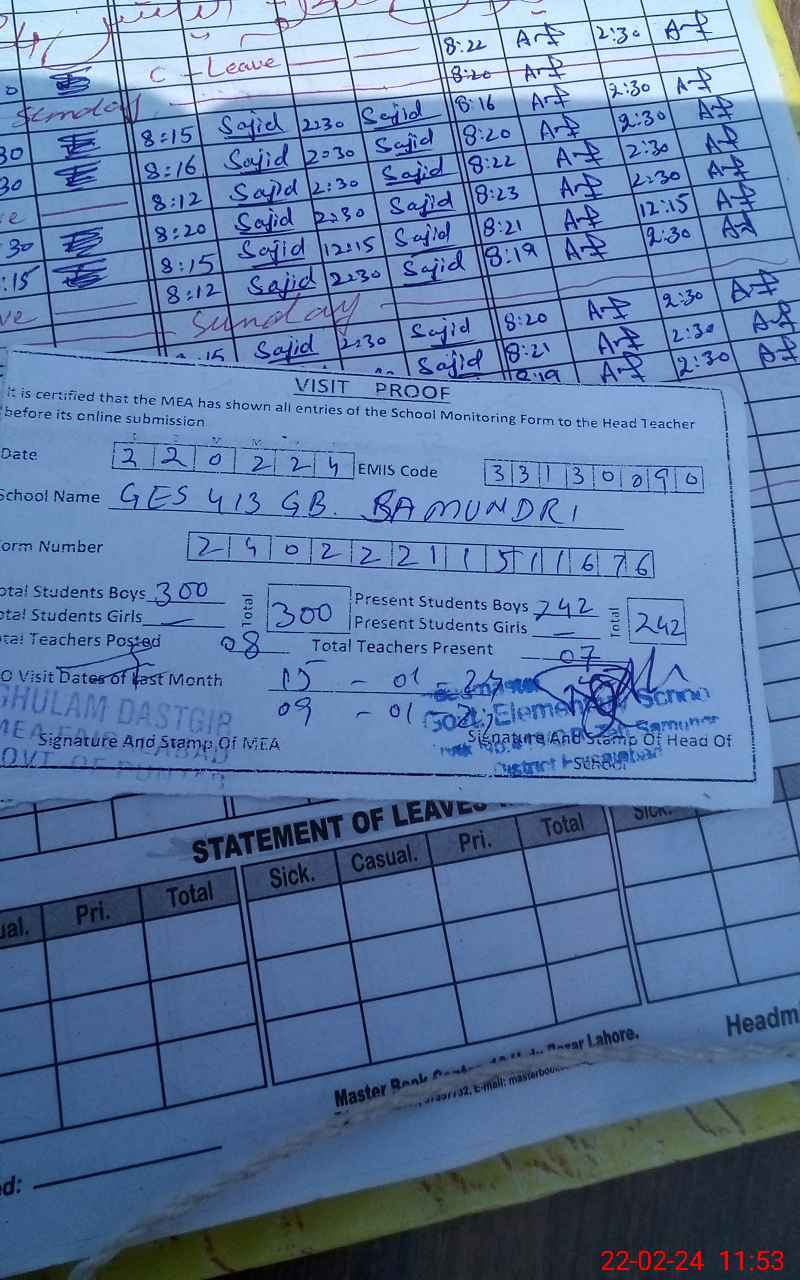 8:22 2:30
C - Leave
8:20
Sunday 8:16 2:30
30 8:15 Sajid 2:30 Sajid 8:20 2:30
30 8:16 Sajid 2:30 Sajid 8:22 2:30
8:12 Sajid 2:30 Sajid 8:23 2:30
30 8:20 Sajid 2:30 Sajid 8:21 12:15
:15 8:15 Sajid 12:15 Sajid 8:19 2:30
8:12 Sajid 2:30 Sajid
Sunday
8:20 2:30
15 Sajid 2:30 Sajid 8:21 2:30
Sajid 2:30
VISIT PROOF
It is certified that the MEA has shown all entries of the School Monitoring Form to the Head Teacher
before its online submission
Date 220224 EMIS Code 33130090
School Name GES 413 GB. BAMUNDRI
orm Number 24022211511676
otal Students Boys 300 Total 300 Present Students Boys 242 Total 242
otal Students Girls — Present Students Girls —
tal Teachers Posted 08 Total Teachers Present 07
O Visit Dates of Last Month 15 - 01 - 24
09 - 01 - 24
GHULAM DASTGIR
MEA FAISALABAD
OVT. OF PUNJAB
Govt; Elementary School
District Faisalabad
Signature And Stamp Of MEA Signature And Stamp Of Head Of
School
STATEMENT OF LEAVES
ual. Pri. Total Sick. Casual. Pri. Total Sick.
Headm
Master Book Lahore.
E-mail: masterbo
ed:
22-02-24 11:53